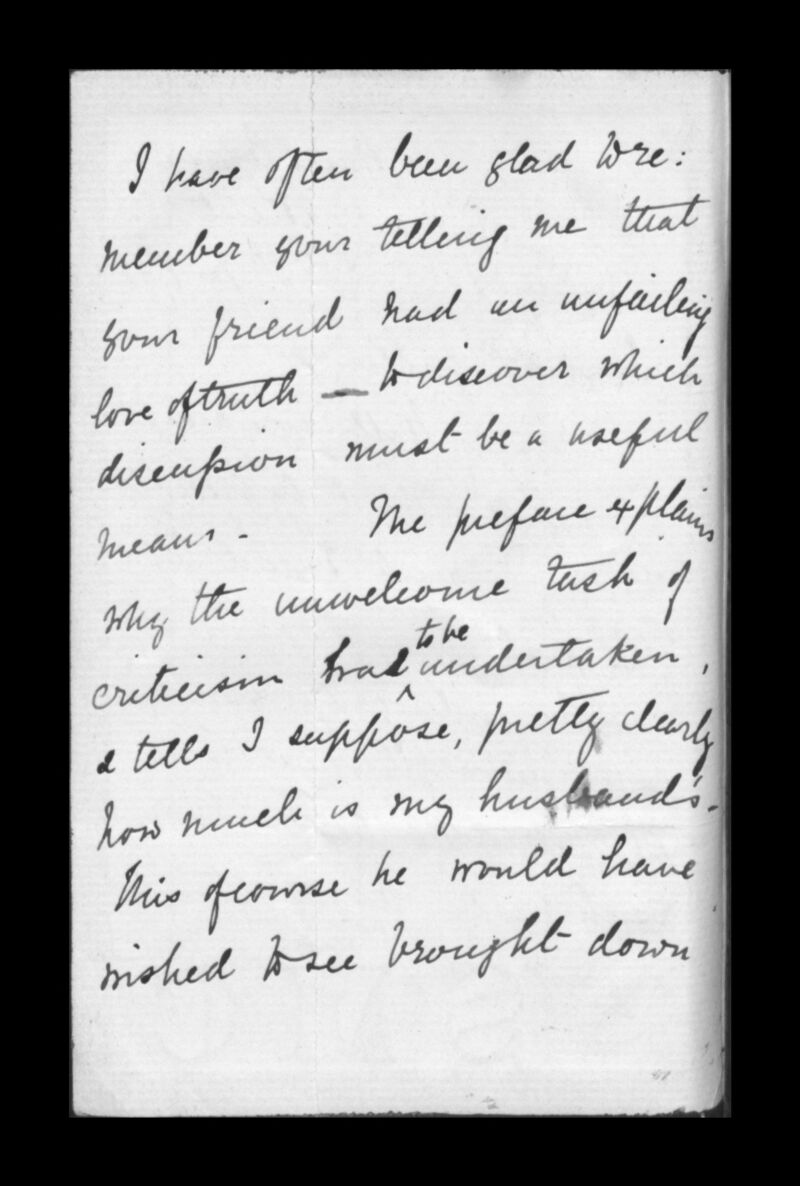 I have often been glad to re:
member your telling me that
your friend had an unfailing
love of truth — to discover which
discussion must be a useful
means - The preface explains
why the unwelcome task of
criticism had to be undertaken,
& tells I suppose, pretty clearly
how much is my husband's.
This of course he would have
wished to see brought down